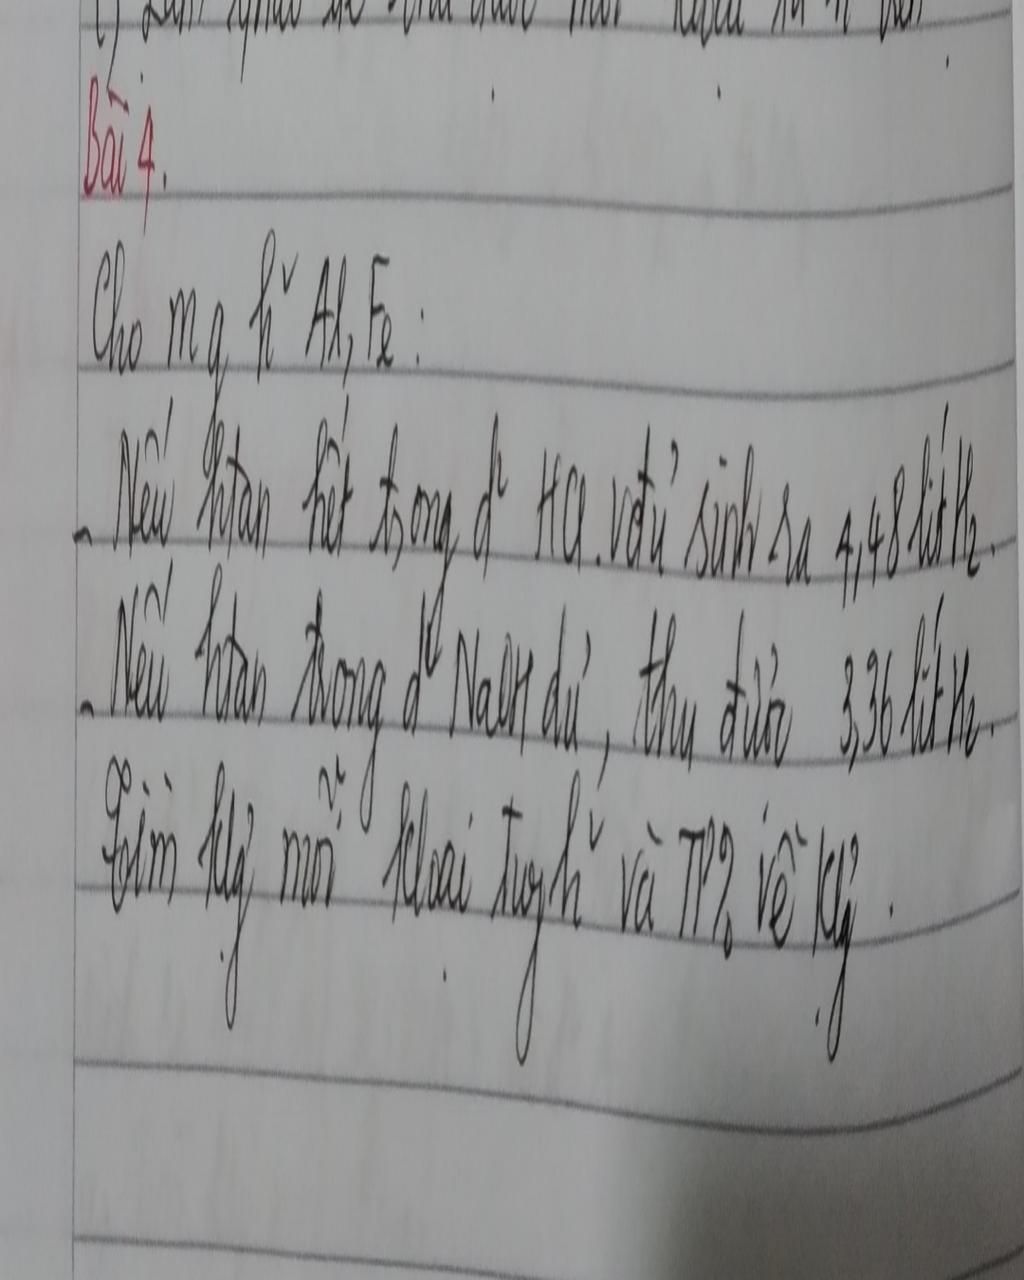 Bài 4.
Cho m g h² Al, Fe :
- Nếu htan hết trong d² HCl vđủ sinh ra 4,48 lít H₂.
- Nếu htan trong d² NaOH dư, thu được 3,36 lít H₂.
Tìm klg mỗi kloại trong h² và TP% về klg.